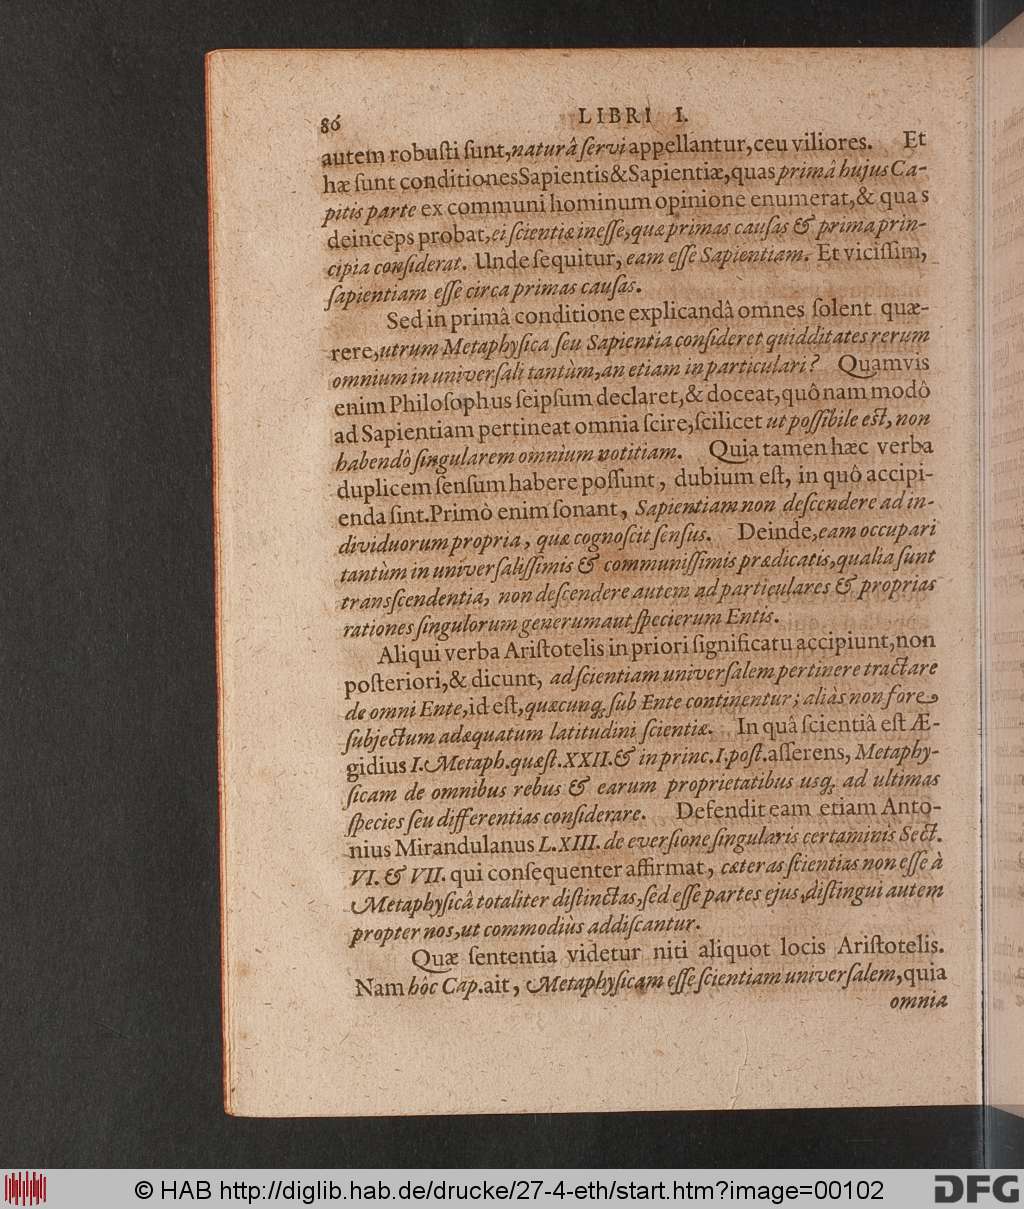 86 LIBRI I.
autem robuſti ſunt, naturâ ſervi appellantur, ceu viliores. Et
hæ ſunt conditiones Sapientis & Sapientiæ, quas primâ hujus Ca-
pitis parte ex communi hominum opinione enumerat, & qua s
deinceps probat, ei ſcientiæ ineſſe, quæ primas cauſas & prima prin-
cipia conſiderat. Unde ſequitur, eam eſſe Sapientiam. Et viciſſim,
ſapientiam eſſe circa primas cauſas.
Sed in primâ conditione explicandâ omnes ſolent quæ-
rere, utrum Metaphyſica ſeu Sapientia conſideret quidditates rerum
omnium in univerſali tantùm, an etiam in particulari? Quamvis
enim Philoſophus ſeipſum declaret, & doceat, quônam modô
ad Sapientiam pertineat omnia ſcire, ſcilicet ut poſſibile eſt, non
habendô ſingularem omnium notitiam. Quia tamen hæc verba
duplicem ſenſum habere poſſunt, dubium eſt, in quô accipi-
enda ſint. Primò enim ſonant, Sapientiam non deſcendere ad in-
dividuorum propria, quæ cognoſcit ſenſus. Deinde, eam occupari
tantùm in univerſaliſſimis & communiſſimis prædicatis, qualia ſunt
tranſcendentia, non deſcendere autem ad particulares & proprias
rationes ſingulorum generum aut ſpecierum Entis.
Aliqui verba Ariſtotelis in priori ſignificatu accipiunt, non
poſteriori, & dicunt, ad ſcientiam univerſalem pertinere tractare
de omni Ente, id eſt, quæcunq; ſub Ente continentur; aliàs non fore
ſubjectum adæquatum latitudini ſcientiæ. In quâ ſcientiâ eſt Æ-
gidius I. Metaph. quæſt. XXII. & in princ. I. poſt. aſſerens, Metaphy-
ſicam de omnibus rebus & earum proprietatibus usq; ad ultimas
ſpecies ſeu differentias conſiderare. Defendit eam etiam Anto-
nius Mirandulanus L. XIII. de everſione ſingularis certaminis Sect.
VI. & VII. qui conſequenter affirmat, cæteras ſcientias non eſſe à
Metaphyſicâ totaliter diſtinctas, ſed eſſe partes ejus, diſtingui autem
propter nos, ut commodiùs addiſcantur.
Quæ ſententia videtur niti aliquot locis Ariſtotelis.
Nam hôc Cap. ait, Metaphyſicam eſſe ſcientiam univerſalem, quia
omnia
© HAB http://diglib.hab.de/drucke/27-4-eth/start.htm?image=00102
DFG